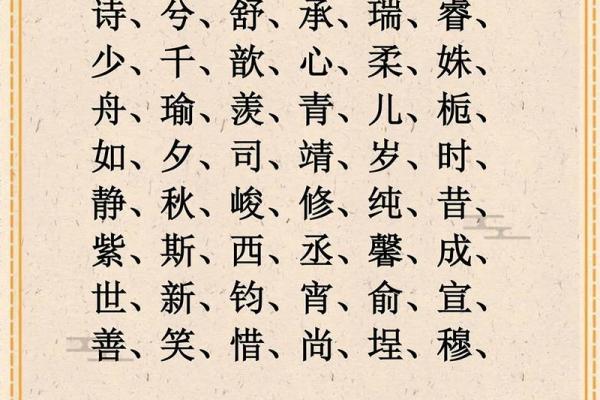 诗、兮、舒、承、瑞、睿、
少、千、歆、心、柔、姝、
舟、瑜、羡、青、儿、栀、
如、夕、司、靖、岁、时、
静、秋、峻、修、纯、昔、
紫、斯、西、丞、馨、成、
世、新、钧、宵、俞、宣、
善、笑、惜、尚、埕、穆、